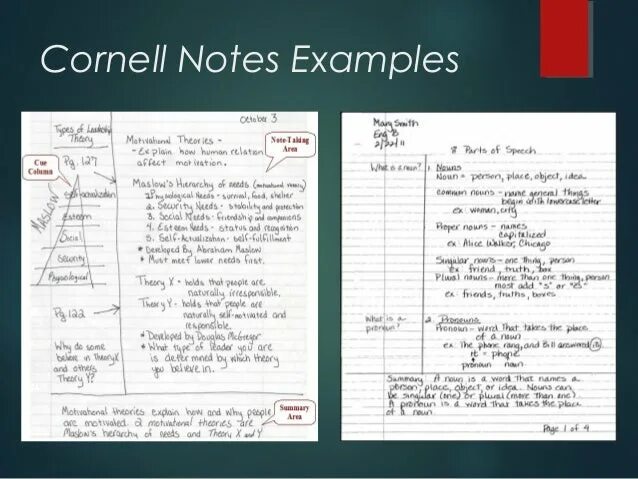 Cornell Notes Examples
October 3
Types of Leadership
Theory
Cue
Column
Pg. 127
MASLOW
Self-actualization
Esteem
Social
Security
Physiological
Pg. 122
Why do some
believe in Theory X
and others
Theory Y?
Note-Taking
Area
Motivational Theories -
- Explain how human relation
affect motivation.
Maslow's Hierarchy of needs (motivational theory)
1. Physiological Needs - survival, food, shelter
2. Security Needs - stability and protection
3. Social Needs - friendship and companions
4. Esteem Needs - status and recognition
5. Self-Actualization - self-fulfillment
* Developed By Abraham Maslow
* Must meet lower needs first.
Theory X - holds that people are
naturally irresponsible.
Theory Y - holds that people are
naturally self-motivated and
responsible.
* Developed by Douglas McGregor
* What type of leader you are
is determined by which theory
you believe in.
Summary
Area
Motivational theories explain how and why people
are motivated. 2 motivational theories are
Maslow's hierarchy of needs and Theory X and Y
Mary Smith
Eng 8
2/22/11
8 Parts of Speech
What is a noun?
1. Nouns
Noun = person, place, object, idea
common nouns - name general things
begin with lowercase letter
ex: woman, city
Proper nouns - names
capitalized
ex: Alice Walker, Chicago
Singular nouns - one thing, person
ex: friend, truth, box
Plural nouns - more than one thing, person
most add "s" or "es"
ex: friends, truths, boxes
What is a
pronoun?
2. Pronouns
Pronoun - word that takes the place
of a noun
ex: The phone rang, and Bill answered it.
it = phone
pronoun noun
Summary: A noun is a word that names a
person, place, object, or idea. Nouns can
be singular (one) or plural (more than one).
A pronoun is a word that takes the place
of a noun.
Page 1 of 4